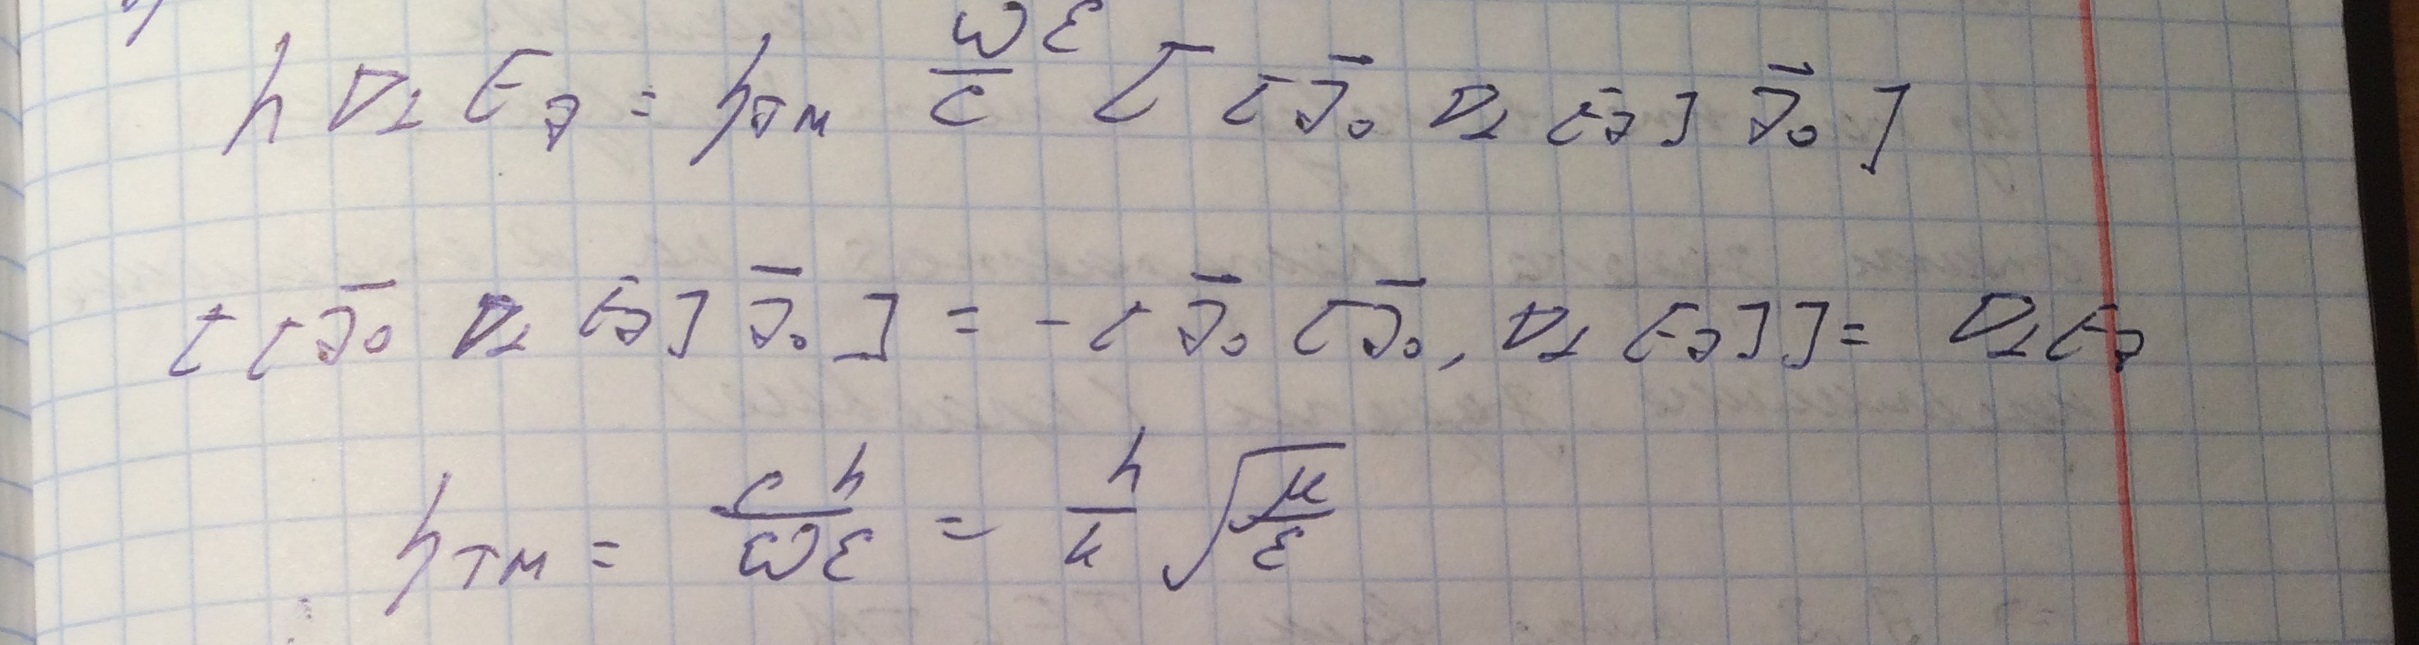 h ∇⊥ Ez = ηTM ω/c ε [ [z̄₀ ∇⊥ Ez] z̄₀ ]
[ [z̄₀ ∇⊥ Ez] z̄₀ ] = -[ z̄₀ [z̄₀, ∇⊥ Ez]] = ∇⊥ Ez
ηTM = ch/ωε = h/k √(μ/ε)